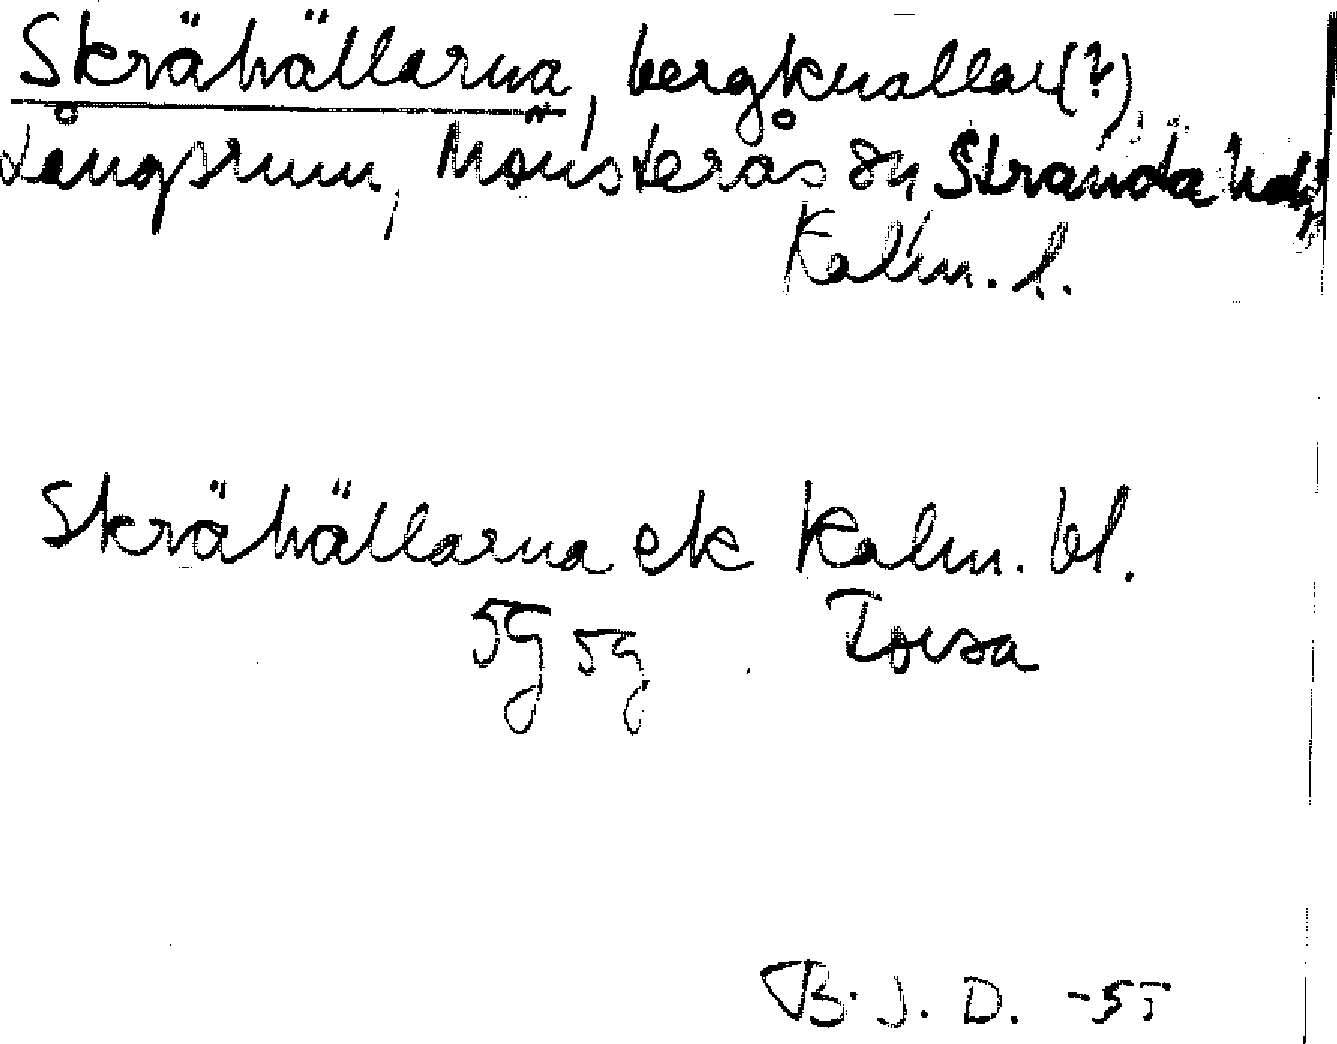 Skrähällarna, bergknallar(?)
Långsrum, Mönsterås sn Stranda hd,
Kalm. l.
Skrähällarna ek Kalm. bl.
5g 5g Torsa
B. J. D. -55